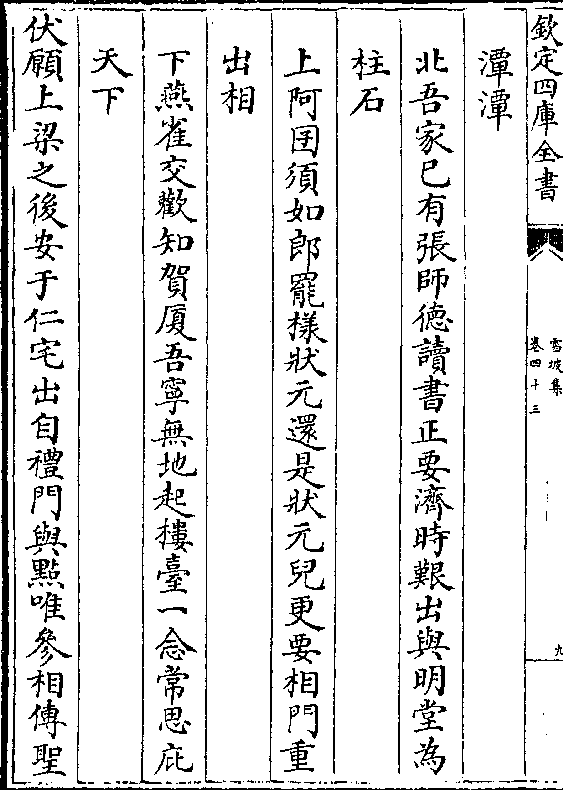 欽定四庫全書
雪坡集
卷四十三
九
潭潭
北吾家已有張師德讀書正要濟時艱出與明堂為
柱石
上阿囝須如郎罷樣狀元還是狀元兒更要相門重
出相
下燕雀交歡知賀厦吾寧無地起樓臺一念常思庇
天下
伏願上梁之後安于仁宅出自禮門與點唯參相傳聖